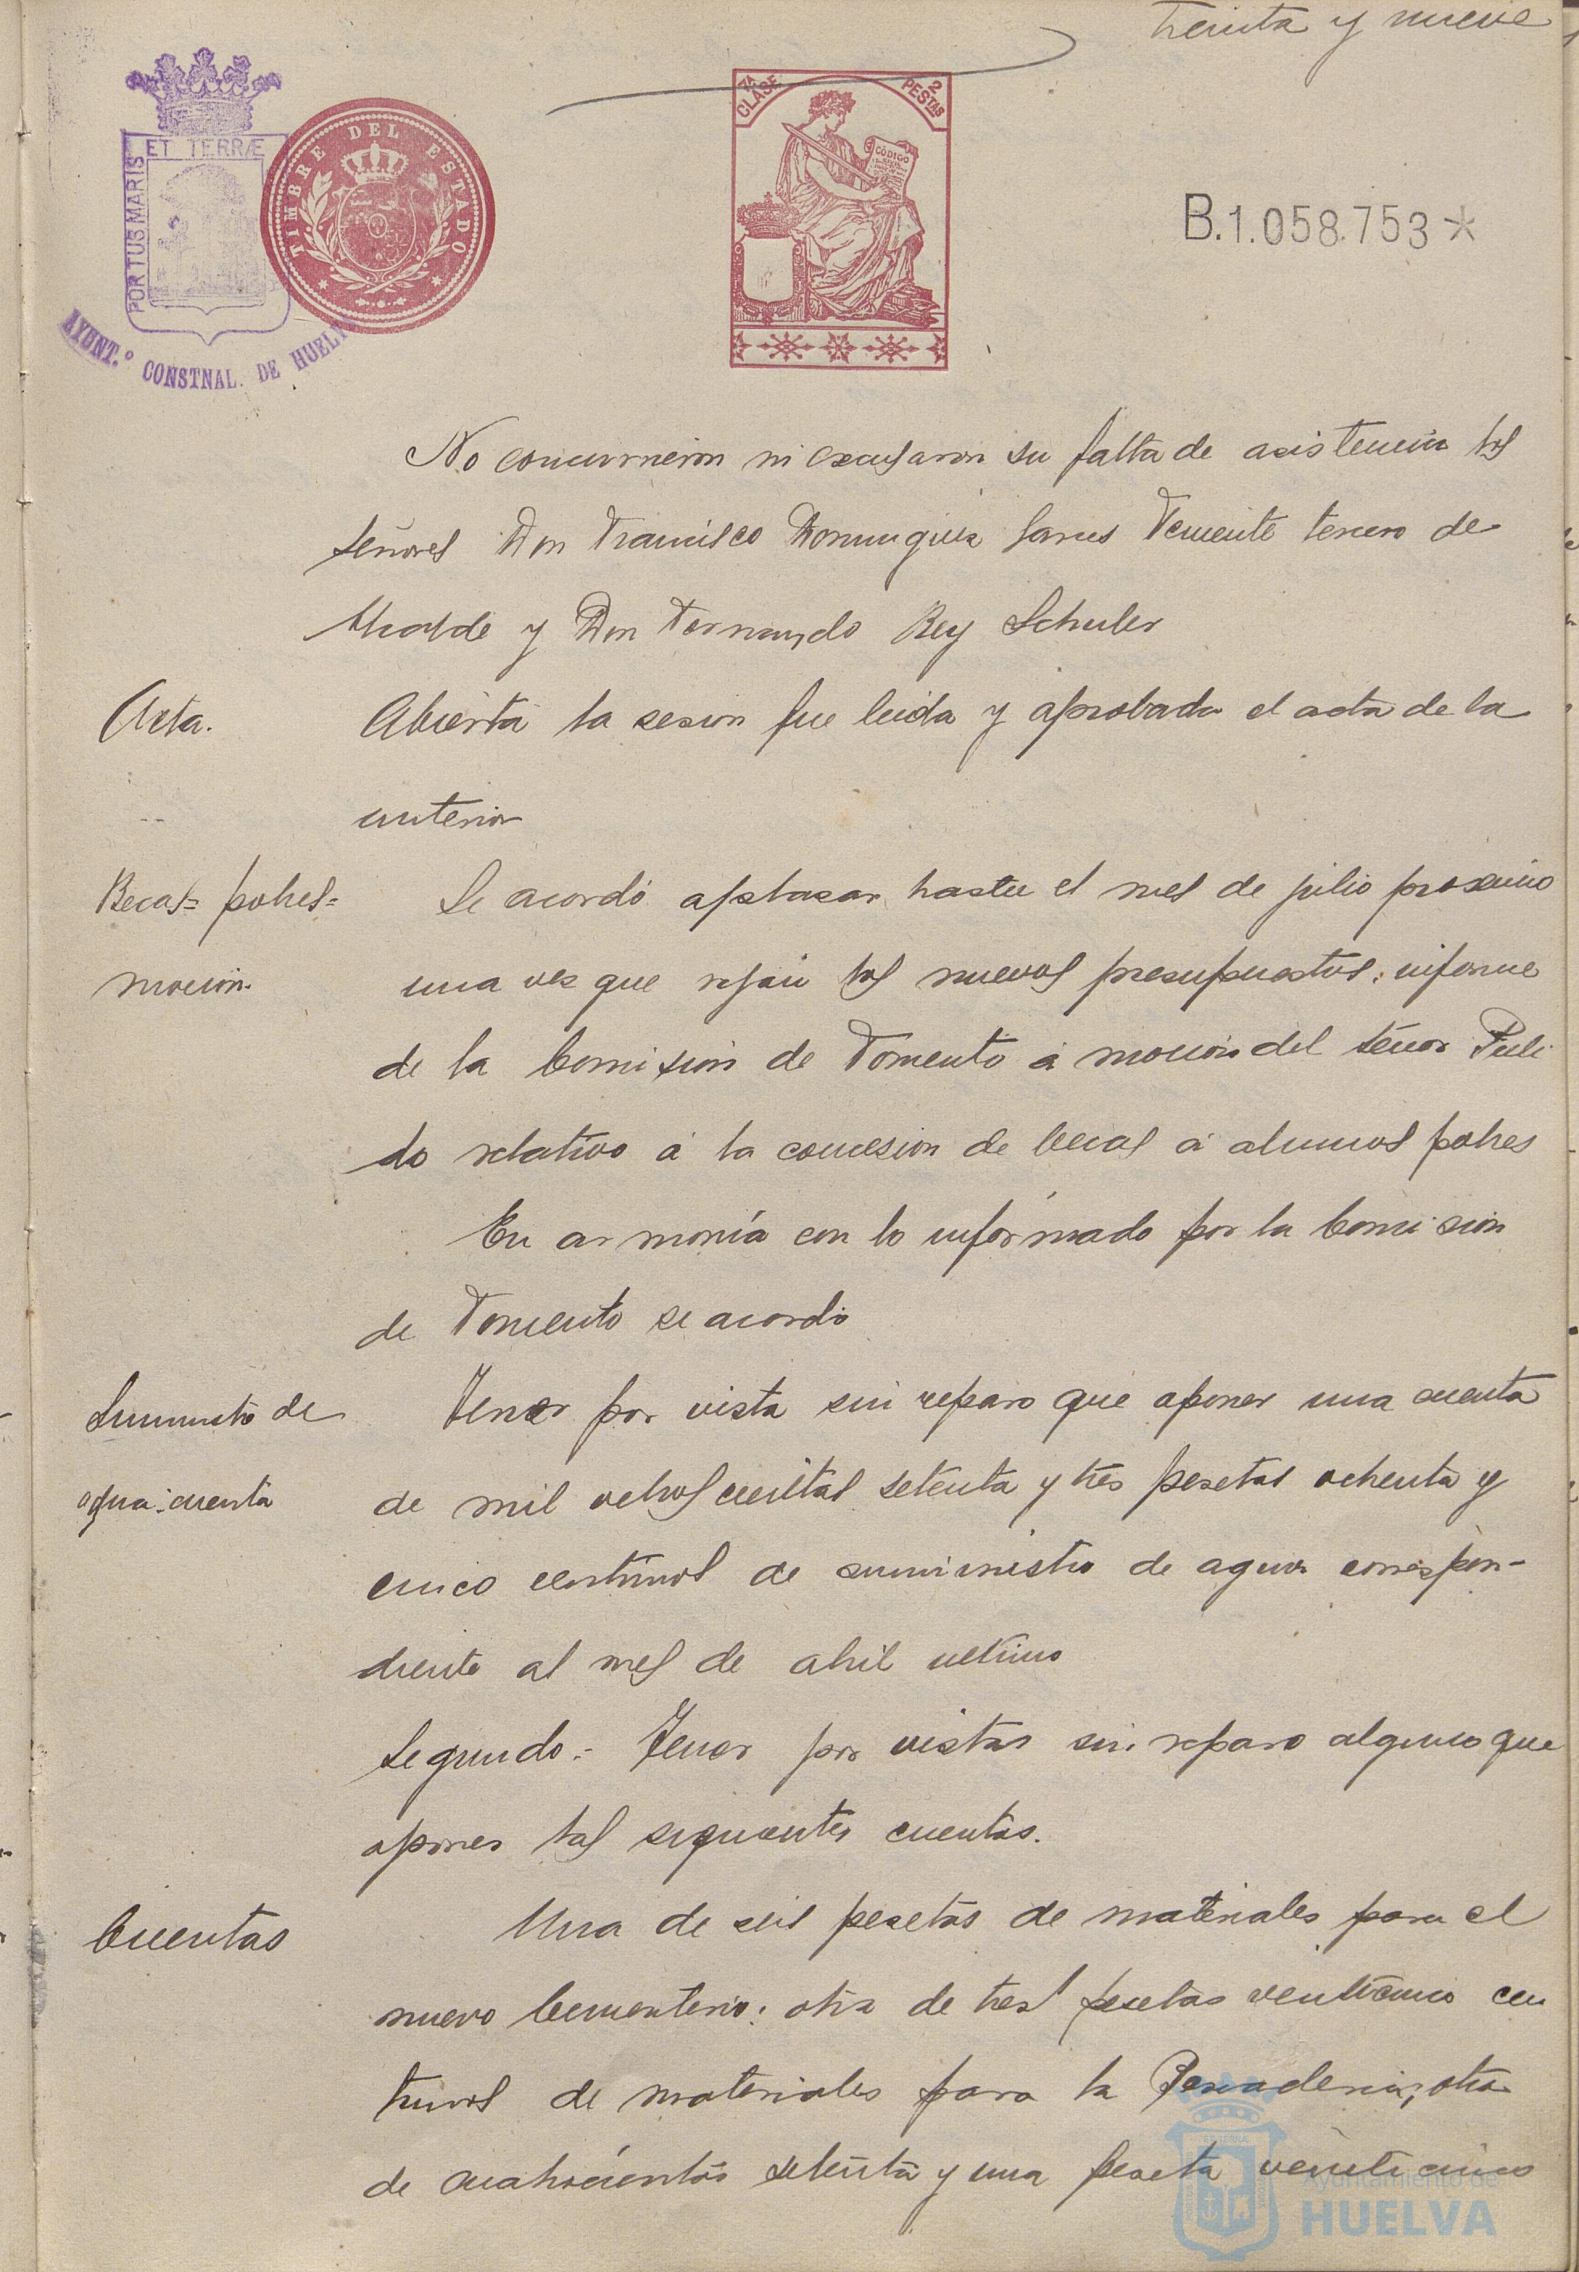 treinta y nueve
7ª CLASE
2 PESTAS
CÓDIGO
ET TERRÆ
PORTUS MARIS
AYUNT.º CONSTNAL. DE HUELVA
TIMBRE DEL ESTADO
B.1.058.753*
No concurrieron ni excusaron su falta de asistencia los
señores Don Francisco Dominguez Teniente tercero de
Alcalde y Don Fernando Rey Schuler
Acta.
Abierta la sesion fue leida y aprobada el acta de la
anterior
Becas= pobres=
moción.
Se acordó aplazar hasta el mes de julio proximo
una vez que rejan los nuevos presupuestos, informe
de la Comisión de Fomento á moción del señor Puli
do relativo á la concesion de becas á alumnos pobres
En armonía con lo informado por la Comision
de Fomento se acordó
Suministro de
agua: cuenta
Tener por vista sin reparo que oponer una cuenta
de mil ochoscientas setenta y tres pesetas ochenta y
cinco centimos de suministro de agua correspon-
diente al mes de abril ultimo
Segundo.- Tener por vistas sin reparo alguno que
oponer las siguientes cuentas.
Cuentas
Una de seis pesetas de materiales para el
nuevo Cementerio: otra de tres pesetas veinticinco cen
timos de materiales para la Pescaderia; otra
de cuatrocientas setenta y una peseta veinticinco
Ayuntamiento de
HUELVA